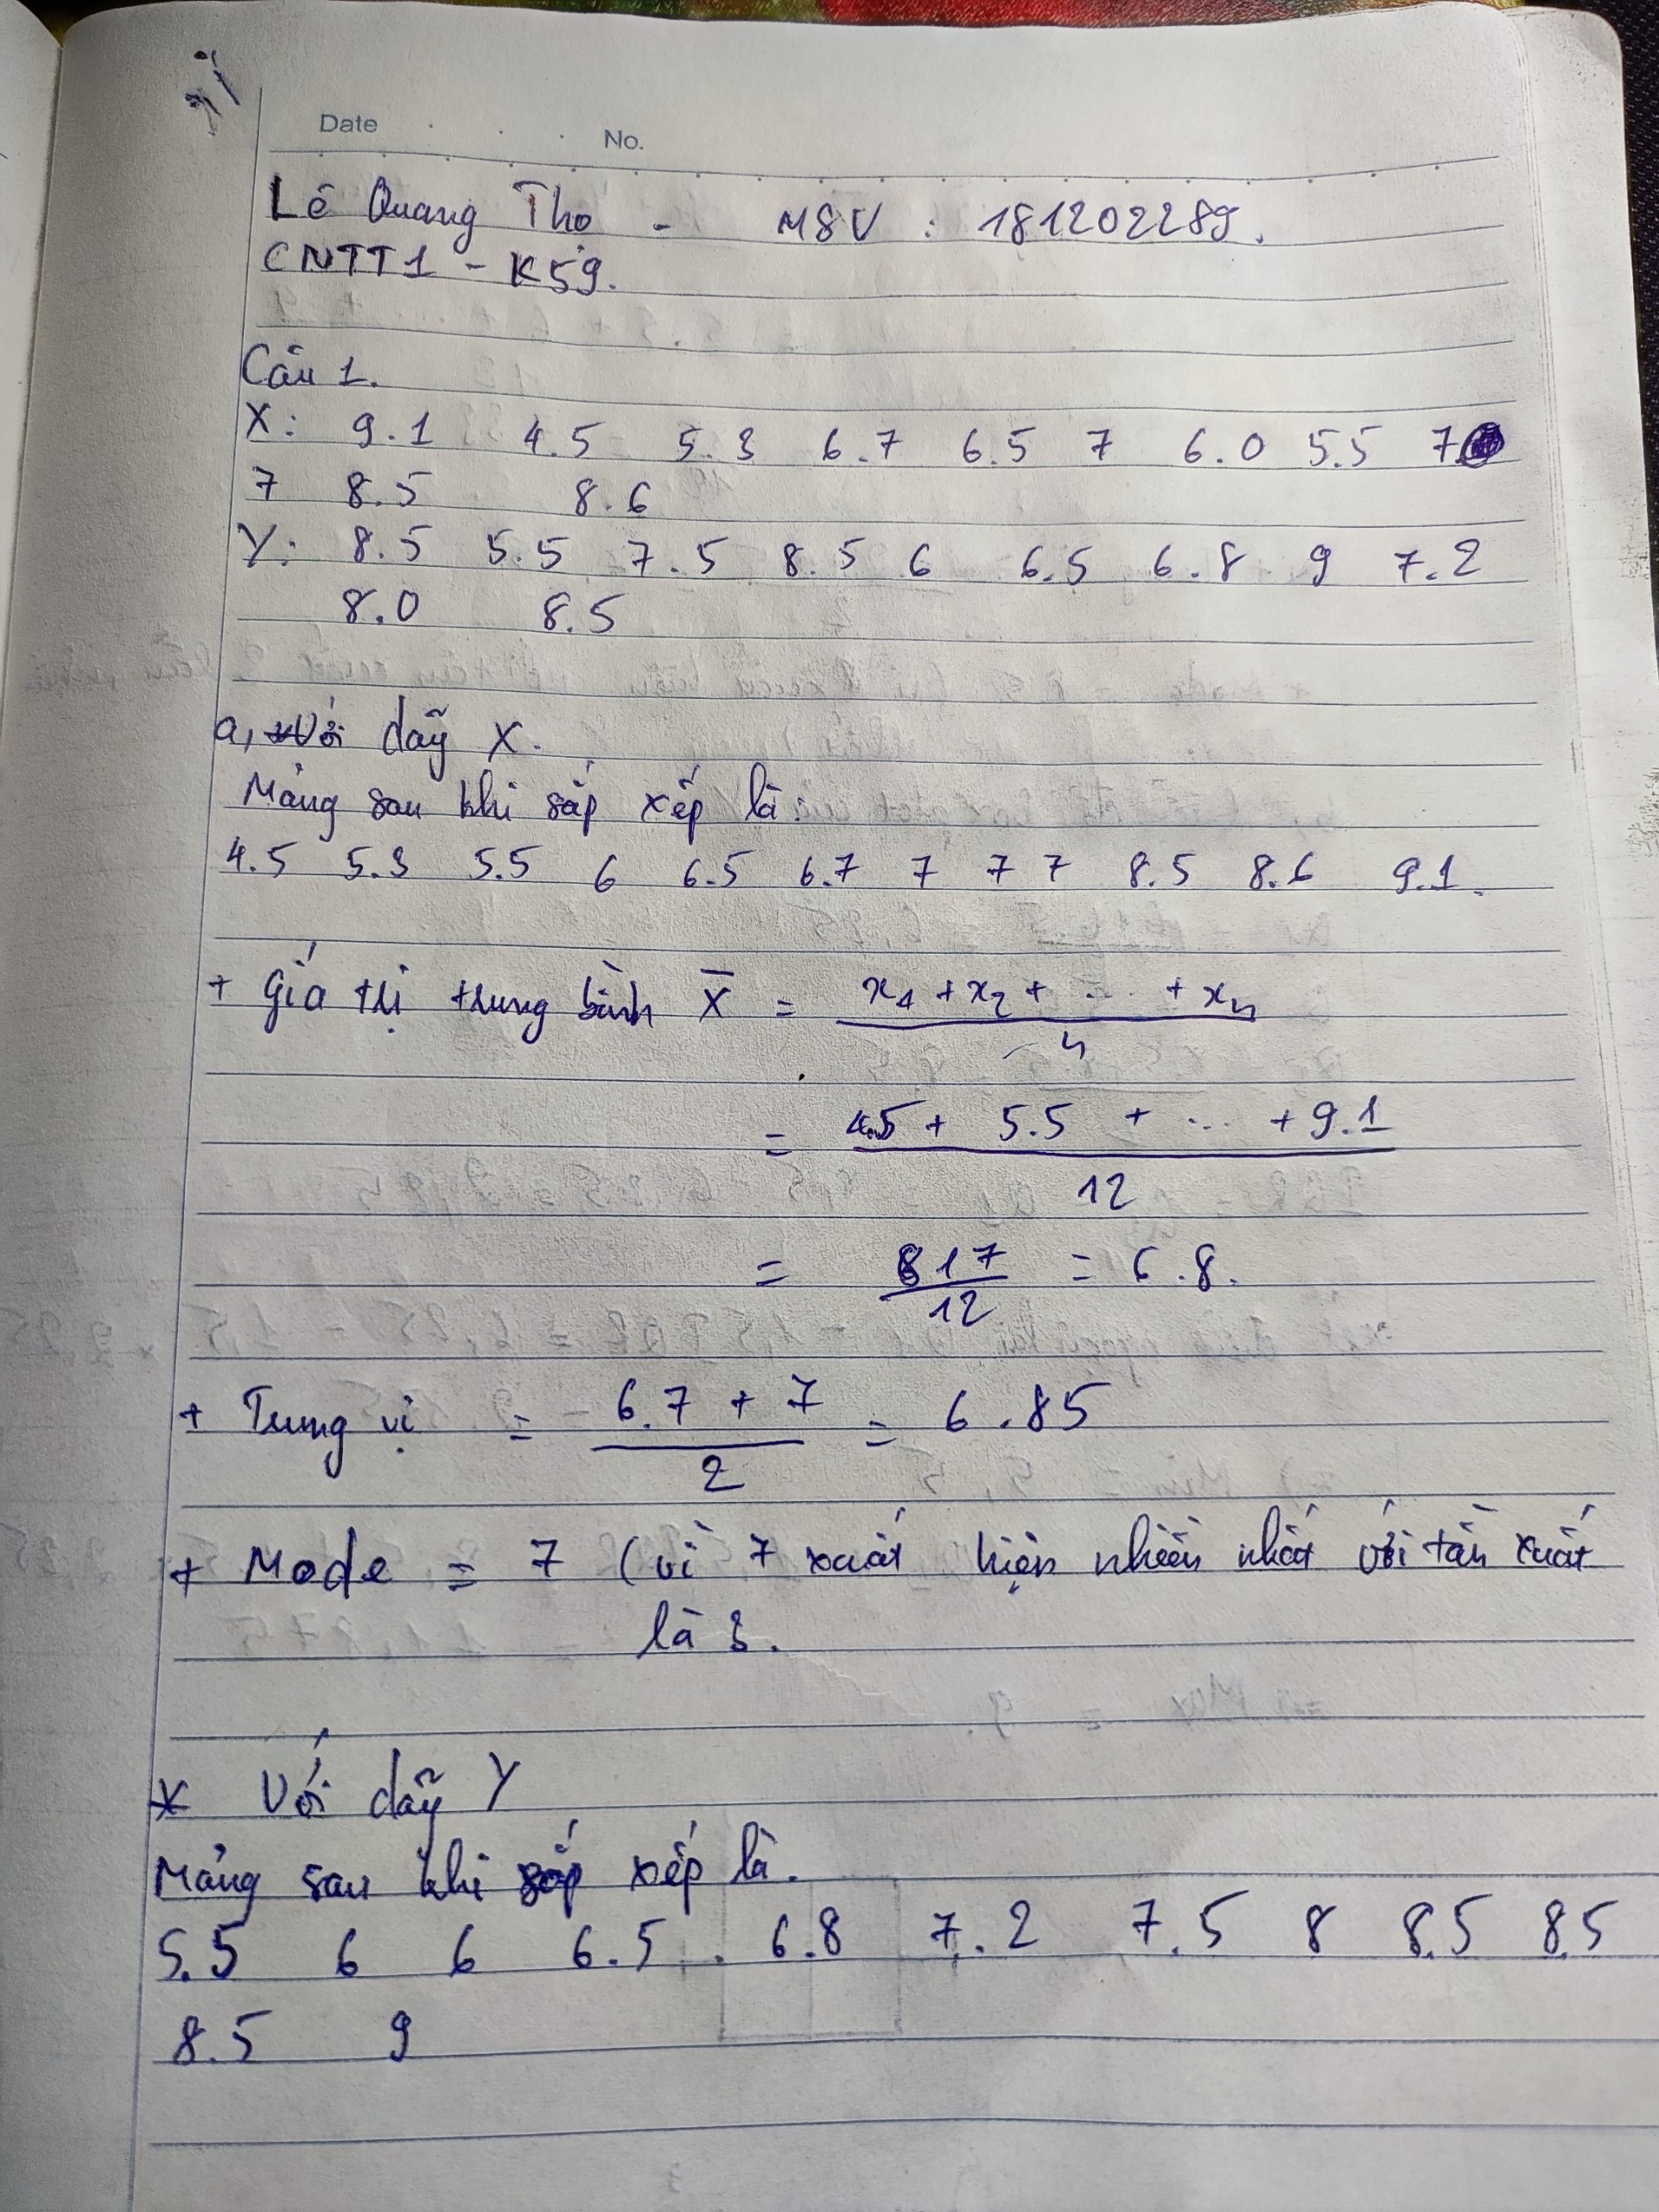 Date
No.
Lê Quang Thọ - MSV : 181202289.
CNTT1 - K59.
Câu 1.
X: 9.1 4.5 5.3 6.7 6.5 7 6.0 5.5 7
7 8.5 8.6
Y: 8.5 5.5 7.5 8.5 6 6.5 6.8 9 7.2
8.0 8.5
a, Với dãy X.
Mảng sau khi sắp xếp là:
4.5 5.3 5.5 6 6.5 6.7 7 7 7 8.5 8.6 9.1.
+ Giá trị trung bình X̄ = (x₁ + x₂ + ... + xₙ) / n
= (4.5 + 5.5 + ... + 9.1) / 12
= 817 / 12 = 6.8.
+ Trung vị = (6.7 + 7) / 2 = 6.85
+ Mode = 7 (vì 7 xuất hiện nhiều nhất với tần xuất
là 3.
* Với dãy Y
Mảng sau khi sắp xếp là.
5.5 6 6 6.5 6.8 7.2 7.5 8 8.5 8.5
8.5 9